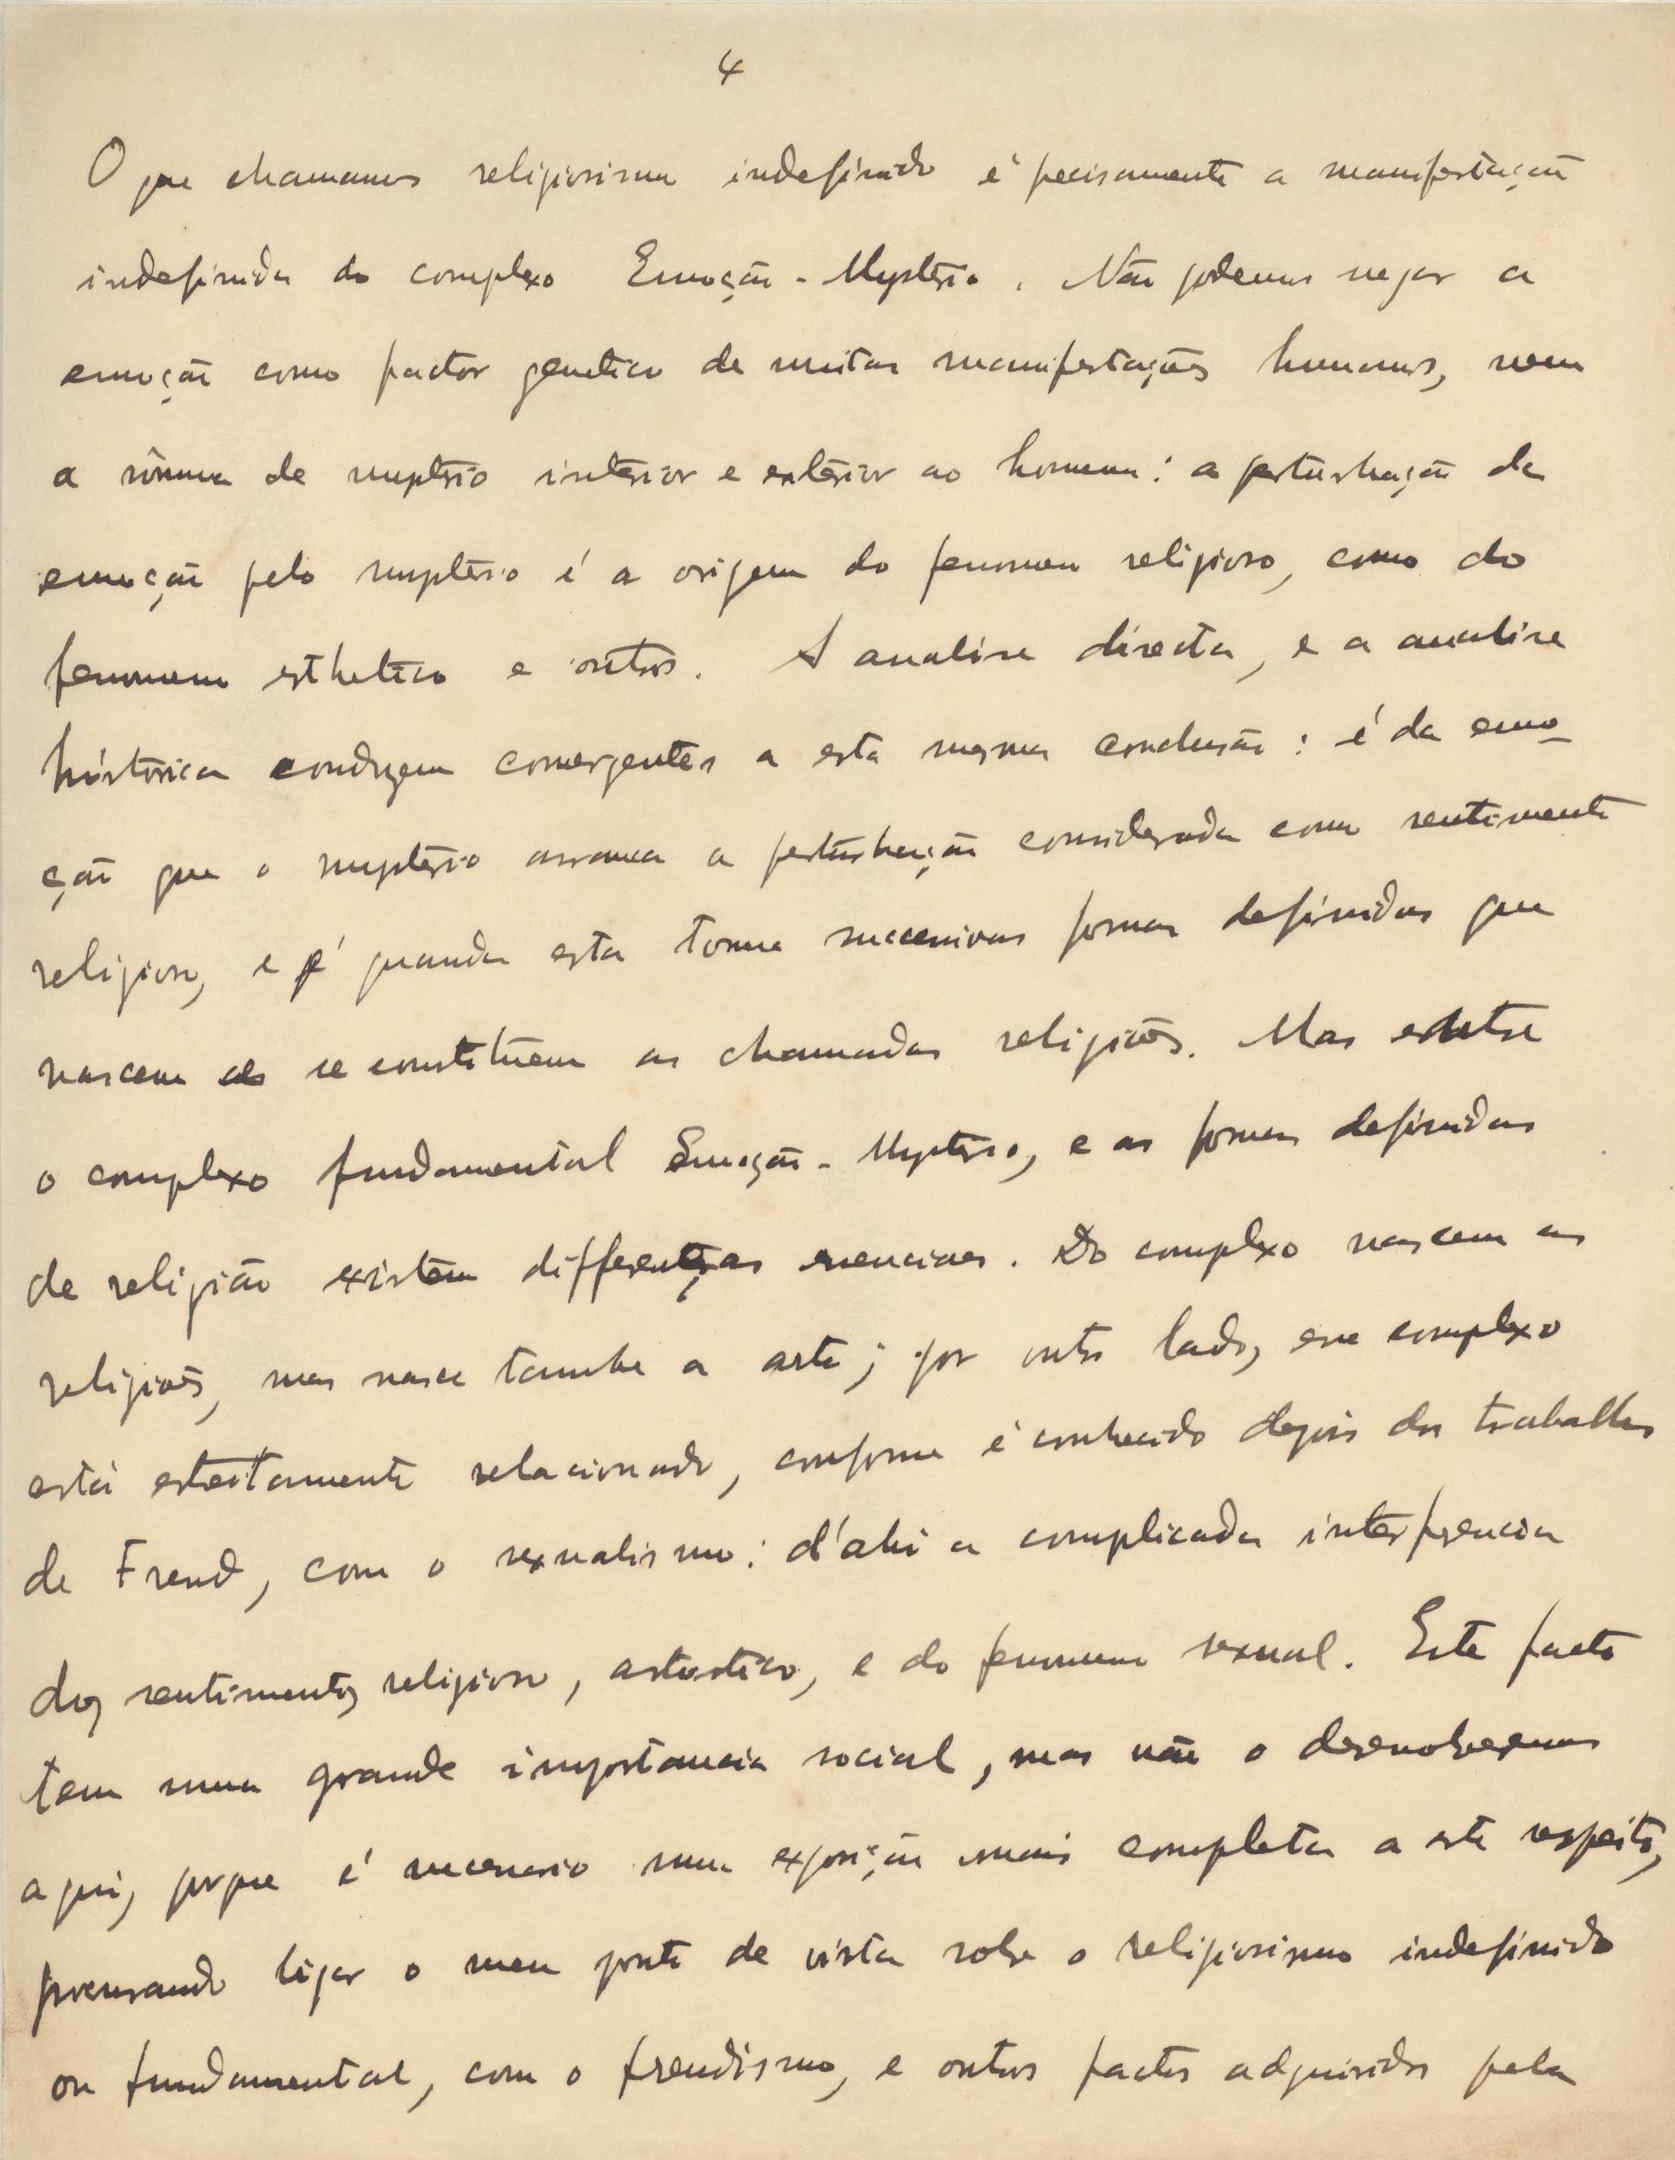 4
O que chamamos religiosismo indefinido é precisamente a manifestação
indefinida do complexo Emoção - Mysterio. Não podemos negar a
emoção como factor genetico de muitas manifestações humanas, nem
a de mysterio interior e exterior ao homem: a perturbação da
emoção pelo mysterio é a origem do fenomeno religioso, como do
fenomeno esthetico e outros. A analise directa, e a analise
historica conduzem convergentes a esta mesma conclusão: é da emo-
ção que o mysterio arranca a perturbação considerada como sentimento
religioso, e é quando esta toma successivas formas definidas que
nascem se constituem as chamadas religiões. Mas entre
o complexo fundamental Emoção - Mysterio, e as formas definidas
de religião existem differenças essenciaes. Do complexo nascem as
religiões, mas nasce tambe a arte; por outro lado, esse complexo
está estreitamente relacionado, conforme é conhecido depois dos trabalhos
de Freud, com o sexualismo: d'ahi a complicada interferencia
dos sentimentos religioso, artistico, e do fenomeno sexual. Este facto
tem uma grande importancia social, mas não o desenvolvemos
aqui, porque é necessario uma exposição mais completa a este respeito,
procurando ligar o meu ponto de vista sobre o religiosismo indefinido
ou fundamental, com o freudismo, e outros factos adquiridos pela